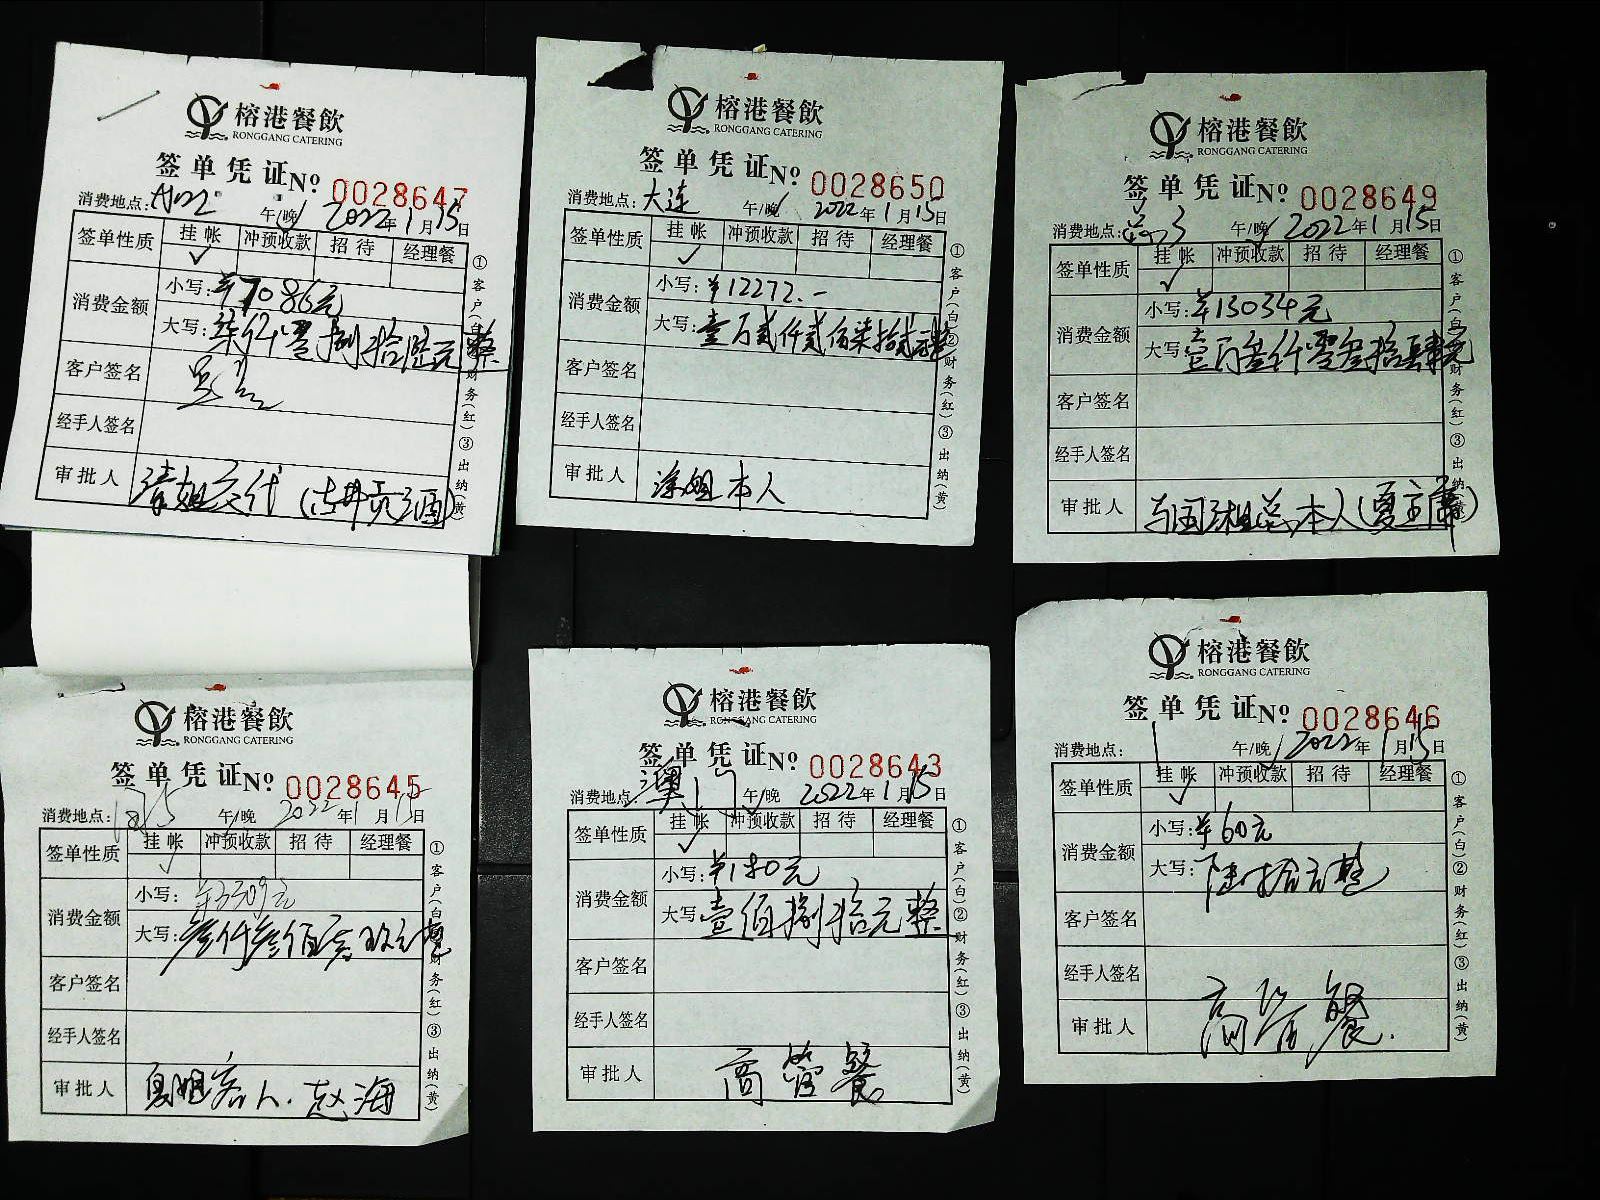 榕港餐飲
RONGGANG CATERING
签单凭证 Nº 0028647
消费地点: A022 午/晚 2022年1月15日
签单性质 挂帐 冲预收款 招待 经理餐
✓
消费金额 小写: ¥7086元
大写: 柒仟零捌拾陆元整
客户签名
经手人签名
审批人 清姐交代(古井贡酒)
①客户(白)②财务(红)③出纳(黄)
榕港餐飲
RONGGANG CATERING
签单凭证 Nº 0028650
消费地点: 大连 午/晚 2022年1月15日
签单性质 挂帐 冲预收款 招待 经理餐
✓
消费金额 小写: ¥12272.-
大写: 壹万贰仟贰佰柒拾贰元整
客户签名
经手人签名
审批人 涂姐本人
①客户(白)②财务(红)③出纳(黄)
榕港餐飲
RONGGANG CATERING
签单凭证 Nº 0028649
消费地点: 午/晚 2022年1月15日
签单性质 挂帐 冲预收款 招待 经理餐
✓
消费金额 小写: ¥13034元
大写: 壹万叁仟零叁拾肆元
客户签名
经手人签名
审批人 本人(夏主席)
①客户(白)②财务(红)③出纳(黄)
榕港餐飲
RONGGANG CATERING
签单凭证 Nº 0028645
消费地点: 午/晚 2022年1月15日
签单性质 挂帐 冲预收款 招待 经理餐
✓
消费金额 小写: ¥3309元
大写: 叁仟叁佰零玖元整
客户签名
经手人签名
审批人 夏姐客人.赵海
①客户(白)②财务(红)③出纳(黄)
榕港餐飲
RONGGANG CATERING
签单凭证 Nº 0028643
消费地点: 澳门 午/晚 2022年1月15日
签单性质 挂帐 冲预收款 招待 经理餐
✓
消费金额 小写: ¥180元
大写: 壹佰捌拾元整
客户签名
经手人签名
审批人 高管餐
①客户(白)②财务(红)③出纳(黄)
榕港餐飲
RONGGANG CATERING
签单凭证 Nº 0028646
消费地点: 午/晚 2022年1月15日
签单性质 挂帐 冲预收款 招待 经理餐
✓
消费金额 小写: ¥60元
大写: 陆拾元整
客户签名
经手人签名
审批人 高管餐.
①客户(白)②财务(红)③出纳(黄)